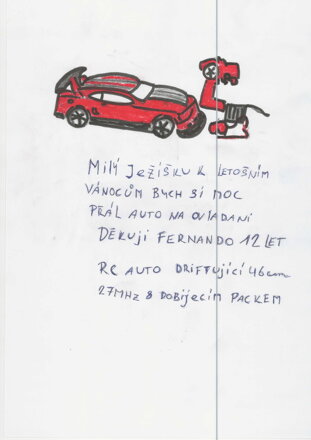 Milý Ježíšku k letošním
vánocům bych si moc
přál auto na ovládaní
Děkuji Fernando 12 let
RC auto driftující 46cm
27MHz s dobíjecím packem